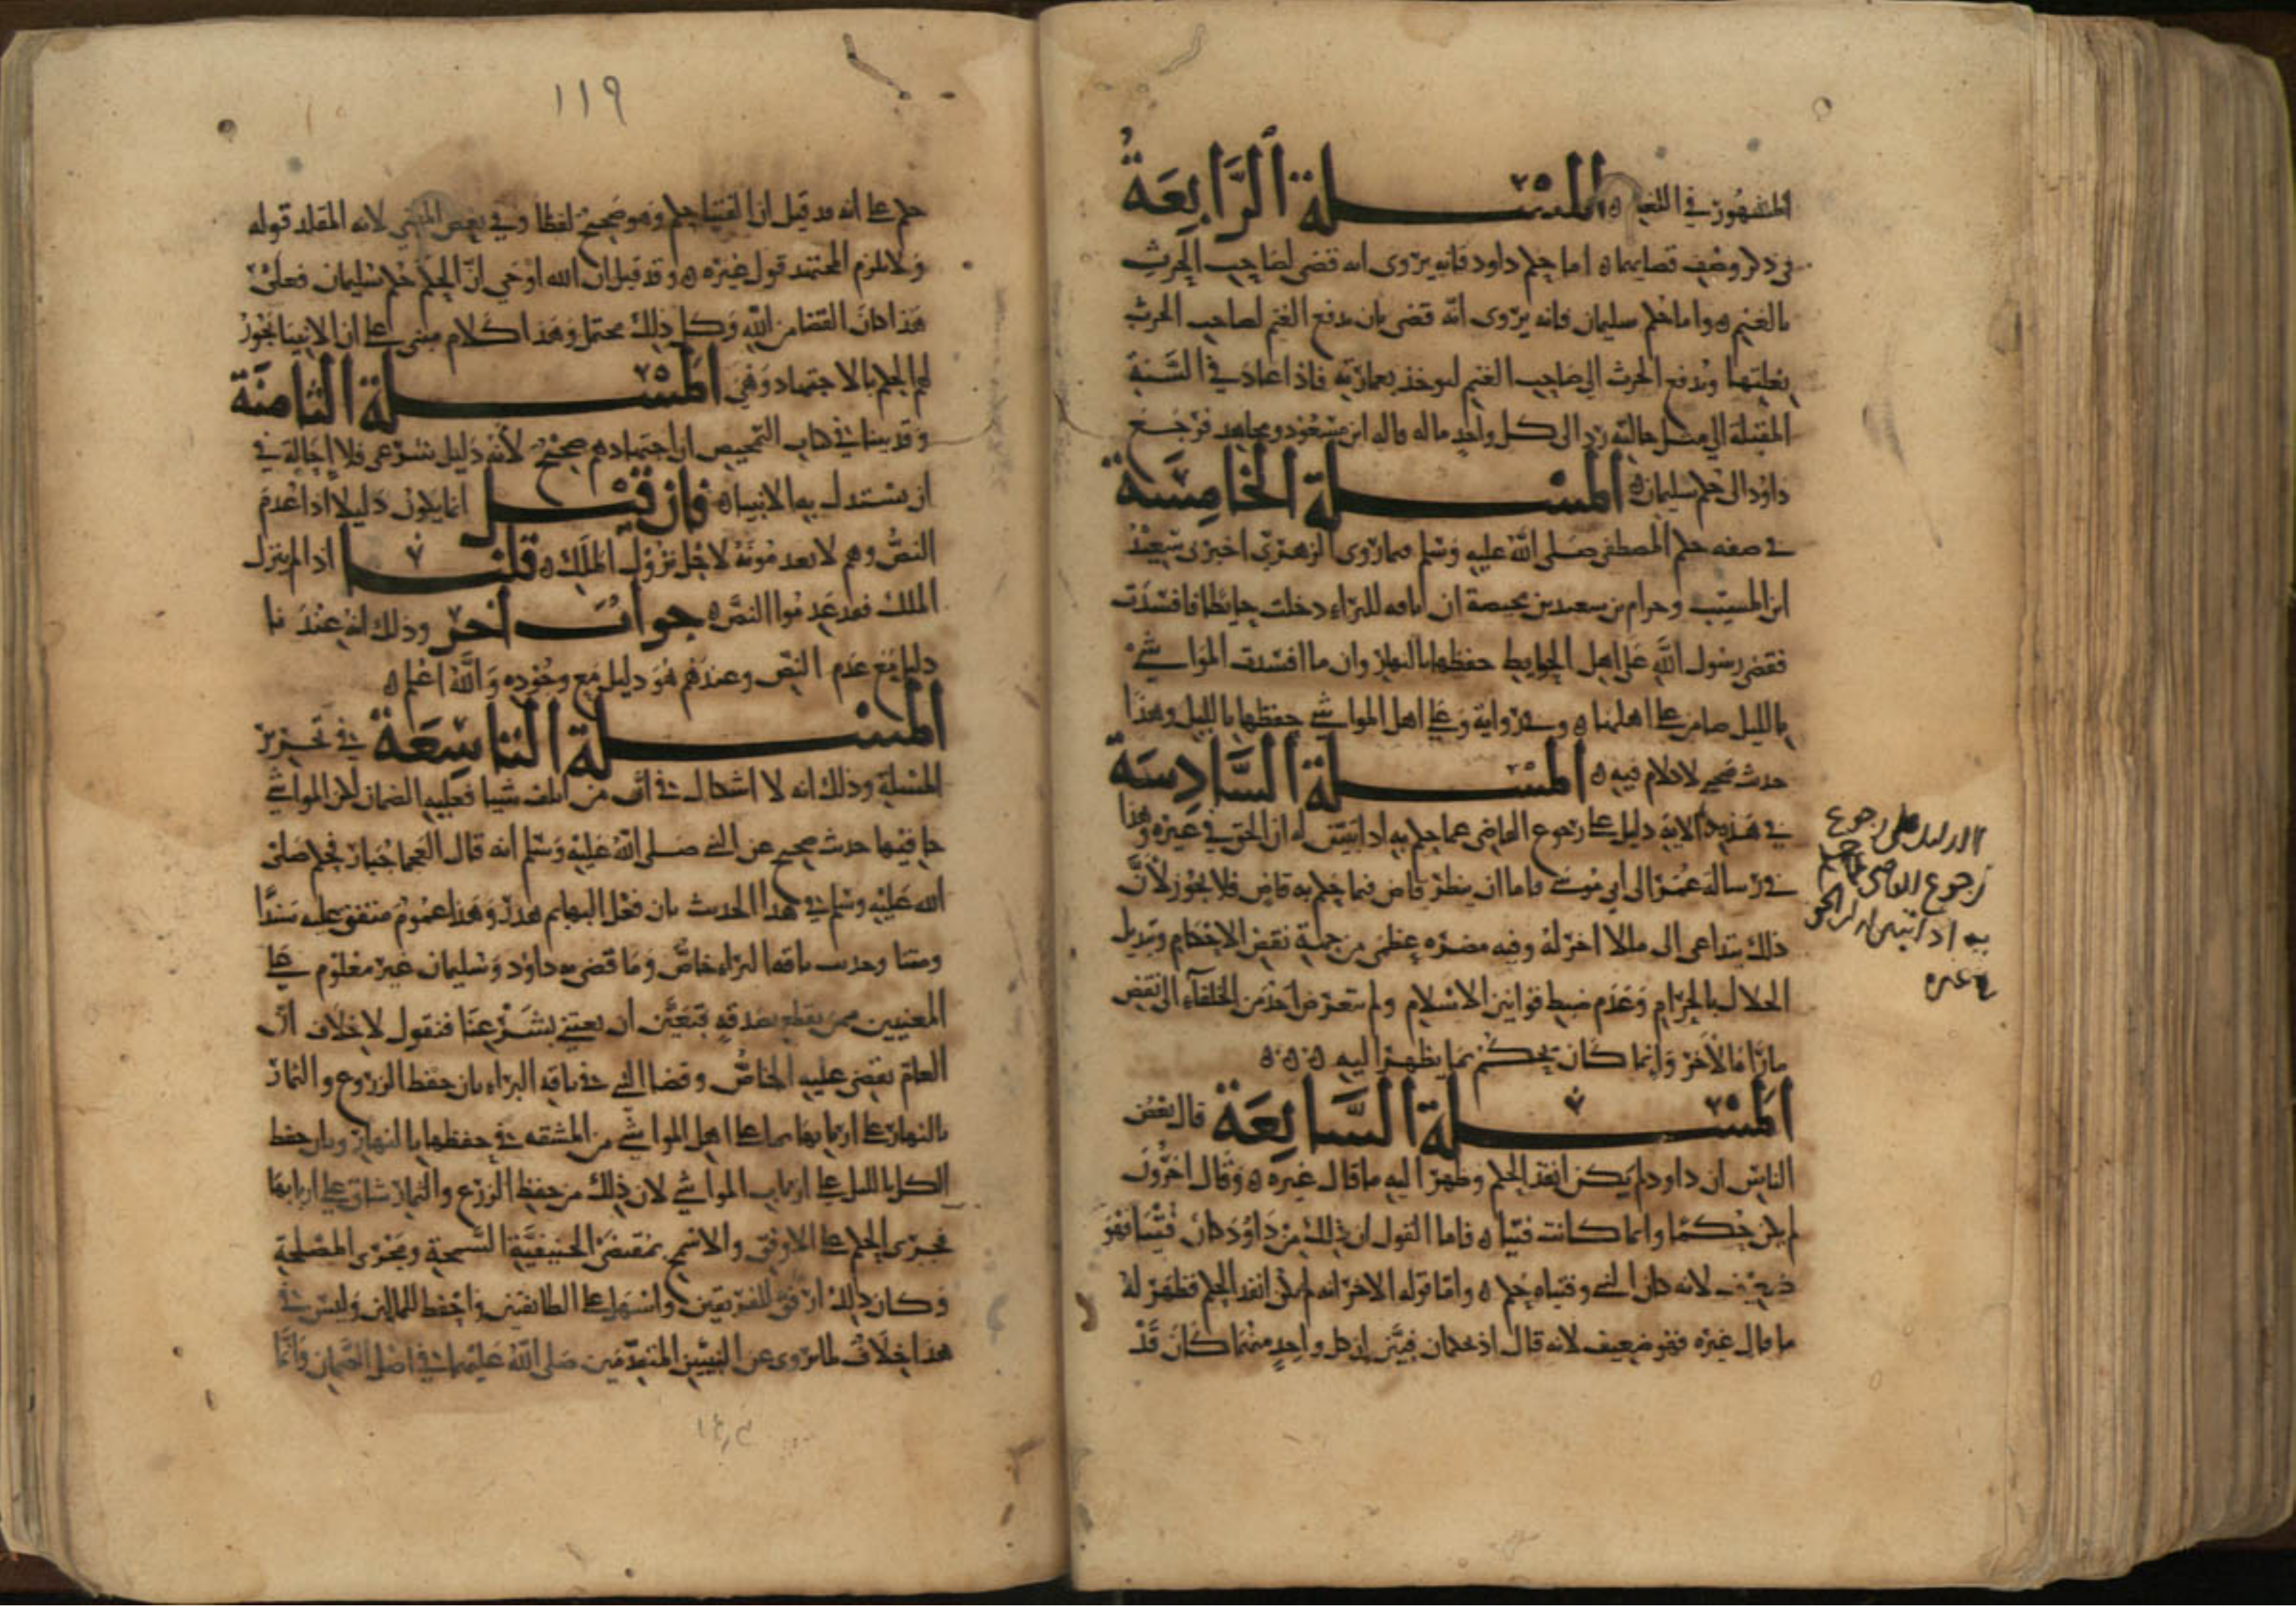 المشهور في اللغة ه المسلة الرابعة
في ذكر وصف قضايهما ه اما حكم داود فانه يروى انه قضى لصاحب الحرث
بالغنم ه واما حكم سليمان فانه يروى انه قضى بان تدفع الغنم لصاحب الحرث
بغلتها وتدفع الحرث الى صاحب الغنم ليوخذ بعمارته فاذا عاد في السنة
المقبلة الى مثل حالته رد الى كل واحد ماله قاله ابن مسعود ومجاهد فرجع
داود الى حكم سليمان ه المسلة الخامسة
في صفه حكم المصطفى صلى الله عليه وسلم فيما روى الزهري اخبرني سعيد
ابن المسيب وحرام بن سعد بن محيصة ان ناقه للبراء دخلت حايطا فافسدت
فقضى رسول الله على اهل الحوايط حفظها بالنهار وان ما افسدت المواشي
بالليل ضامن على اهلها ه وفي رواية وعلى اهل المواشي حفظها بالليل وهذا
حدث صحيح لا كلام فيه ه المسلة السادسة
في هذه الاية دليل على رجوع القاضي عما حكم به اذا تبين له ان الحق في غيره وهذا
في رسالة عمر الى ابي موسى فاما ان ينظر قاض فيما حكم به قاض فلا يجوز لان
ذلك يتداعى الى ما لا اخر له وفيه مضره عظمى من جملة نقض الاحكام وتبديل
الحلال بالحرام وعدم ضبط قوانين الاسلام ولم يتعرض احد من الخلفاء الى نقض
ما راه الاخر وانما كان يحكم بما يظهر اليه ه ه ه
المسلة السابعة قال بعض
الناس ان داود لم يكن انفذ الحكم وظهر اليه ما قال غيره ه وقال اخرون
لم يكن حكما وانما كانت فتيا ه فاما القول ان ذلك من داود كان فتيا فهو
ضعيف لانه كان النبي وفتياه حكم ه واما قوله الاخر انه لم يكن انفذ الحكم فظهر له
ما قال غيره فهو ضعيف لانه قال اذ يحكمان فبين ان كل واحد منهما كان قد
الدليل على رجوع
رجوع القاضي عما حكم
به اذا تبين ان الحق
في غيره
١١٩
حكم على انه قد قيل ان الفتيا حكم وهو صحيح لفظا وفي بعض المعنى لانه المقلد قوله
ولا يلزم المجتهد قول غيره ه وقد قيل ان الله اوحى ان الحكم حكم سليمان فعلى
هذا كان القضا من الله وكل ذلك محتمل وهذا كلام مبني على ان الانبيا يجوز
لهم الحكم بالاجتهاد وهي المسلة الثامنة
وقد بينا في كتاب التمحيص ان اجتهادهم صحيح لانه دليل شرعي فلا احالة في
ان يستدل به الانبيا ه فان قيل انما يكون دليلا اذا عدم
النص وهم لا يعدمونه لاجل نزول الملك ه قلنا اذا لم ينزل
الملك فقد عدموا النص ه جواب اخر وذلك انه عندنا
دليل مع عدم النص وعندهم هو دليل مع وجوده والله اعلم ه
المسلة التاسعة في تحرير
المسلة وذلك انه لا اشكال في ان من اتلف شيا فعليه الضمان لكن المواشي
جا فيها حدث صحيح عن النبي صلى الله عليه وسلم انه قال العجما جبار فحكم صلى
الله عليه وسلم في هذا الحدث بان فعل البهايم هدر وهذا عموم متفق عليه سندا
ومتنا وحدث ناقه البراء خاص وما قضى به داود وسليمان غير معلوم على
المعنيين ممن يقطع بصدقه فتعين ان يعتني بشرعنا فنقول لا خلاف ان
العام يقضي عليه الخاص وقضا النبي في ناقه البراء بان حفظ الزروع والثمار
بالنهار على اربابها بما على اهل المواشي من المشقه في حفظها بالنهار وبان حفظ
الكل بالليل على ارباب المواشي لان ذلك من حفظ الزرع والثمار شاق على اربابها
فجرى الحكم على الاوفق والاسمح بمقتضى الحنيفية السمحة ومجرى المصلحة
وكان ذلك ارفق للفريقين واسهل على الطايفتين واحفظ للمالين وليس في
هذا خلاف لما يروى عن النبيين المتقدمين صلى الله عليهما في اصل الضمان وانما